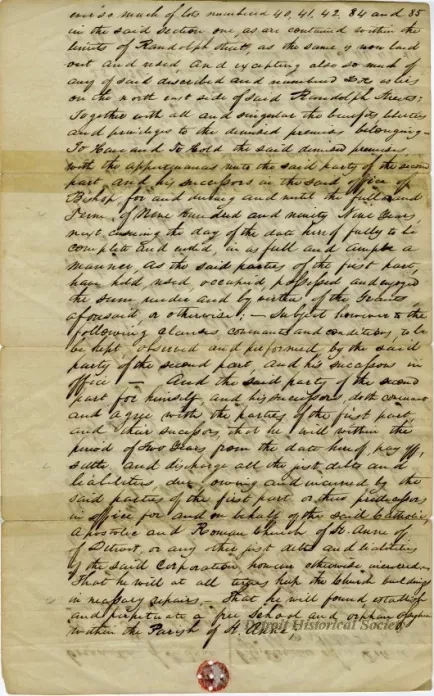 ever so much of lots numbered 40, 41, 42, 84 and 85
in the said section one as are contained within the
limits of Randolph Street, as the same is now laid
out and used and excepting also so much of
any of said described and numbered lots as lies
on the north east side of said Randolph Street:
Together with all and singular the benefits liberties
and privileges to the demised premises belonging—
To Have and To Hold the said demised premises
with the appurtenances unto the said party of the second
part, and his successors in the said office of
Bishop for and during and until the full end
Term of Nine Hundred and ninety Nine Years,
next ensuing the day of the date hereof fully to be
complete and ended, in as full and ample a
manner, as the said parties of the first part,
have held, used, occupied possessed and enjoyed
the same under and by virtue of the Grants
aforesaid or otherwise; — Subject however to the
following clauses, covenants and conditions, to be
be kept, observed and performed by the said
party of the second part, and his successors in
office — And the said party of the second
part for himself, and his successors, doth covenant
and agree with the parties of the first part
and their successors, that he will within the
period of two years from the date hereof, pay off,
settle and discharge all the just debts and
liabilities due, owing and incurred by the
said parties of the first part or their predecessors
in office for and on behalf of the said Catholic,
Apostolic and Roman Church of St. Anne of
of Detroit, or any other just debts and liabilities
of the said Corporation, however otherwise incurred.
That he will at all times keep the Church buildings
in necessary repairs — That he will found establish
and perpetuate a free School and orphan Asylum
within the Parish of St. Anne
Detroit Historical Society